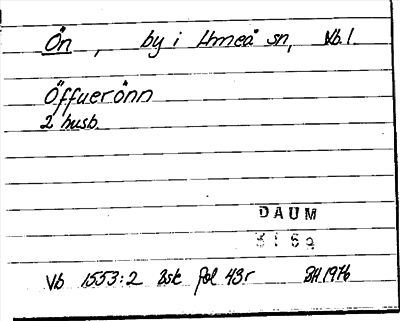 Ön, by i Umeå sn, Vb.l.
Öffuerönn
2 husb.
DAUM
Vb 1553:2 Bsk fol 43r BH 1976